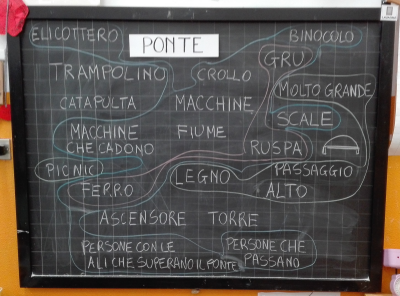 ELICOTTERO
BINOCOLO
PONTE
GRU
TRAMPOLINO
CROLLO
MOLTO GRANDE
CATAPULTA
MACCHINE
SCALE
MACCHINE
CHE CADONO
FIUME
RUSPA
PIC NIC
LEGNO
PASSAGGIO
FERRO
ALTO
ASCENSORE
TORRE
PERSONE CON LE
ALI CHE SUPERANO IL PONTE
PERSONE CHE
PASSANO